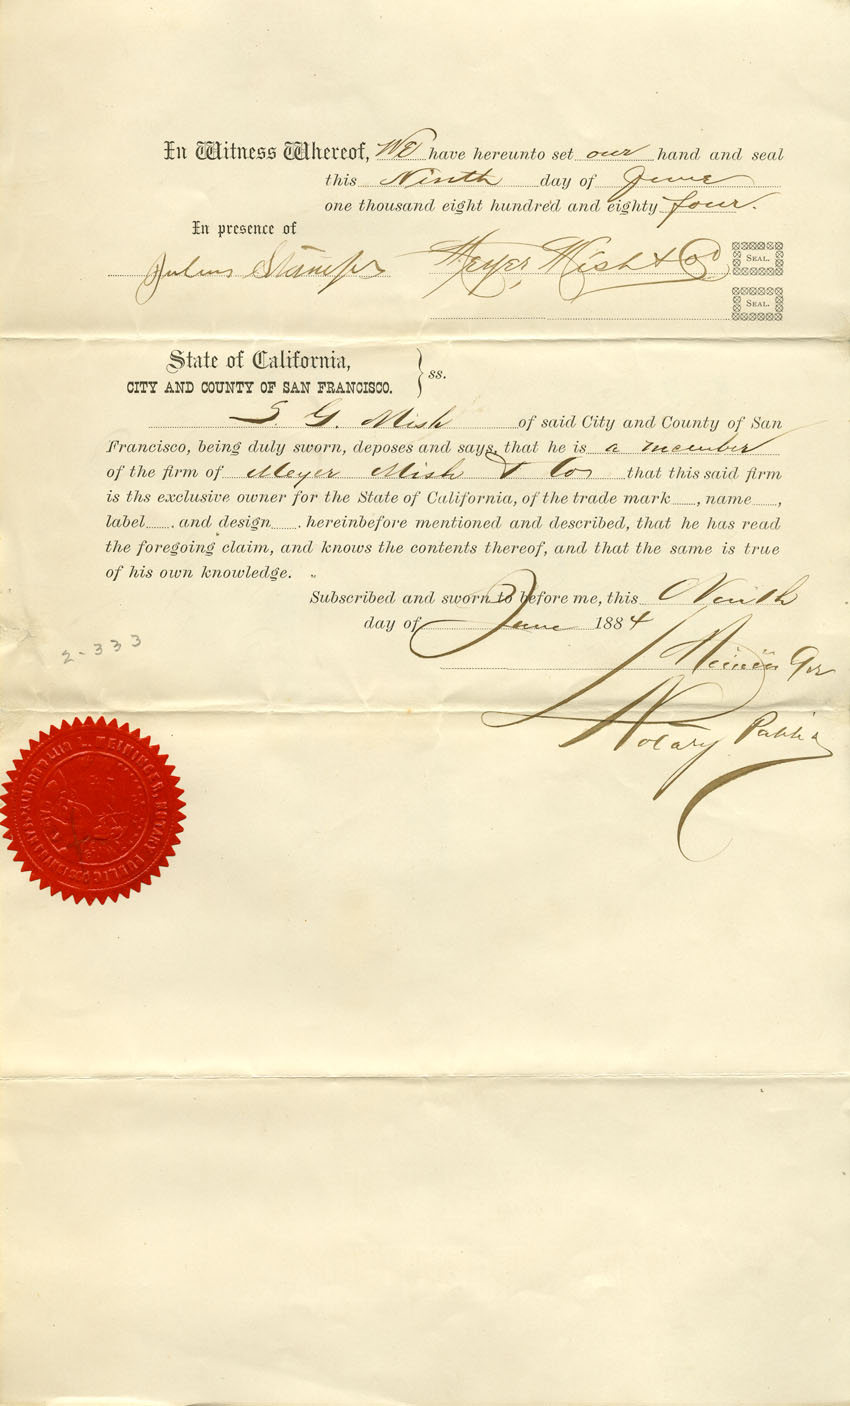 In Witness Whereof, We have hereunto set our hand and seal
this Ninth day of June
one thousand eight hundred and eighty four.
In presence of
Julius Meyer, Mish & Co SEAL.
SEAL.
State of California,
CITY AND COUNTY OF SAN FRANCISCO. } ss.
S. G. Mish of said City and County of San
Francisco, being duly sworn, deposes and says, that he is a member
of the firm of Meyer Mish & Co that this said firm
is ths exclusive owner for the State of California, of the trade mark , name ,
label . and design . hereinbefore mentioned and described, that he has read
the foregoing claim, and knows the contents thereof, and that the same is true
of his own knowledge.
Subscribed and sworn to before me, this Ninth
day of June 1884
2-333
Notary Public
NOTARY PUBLIC
SAN FRANCISCO